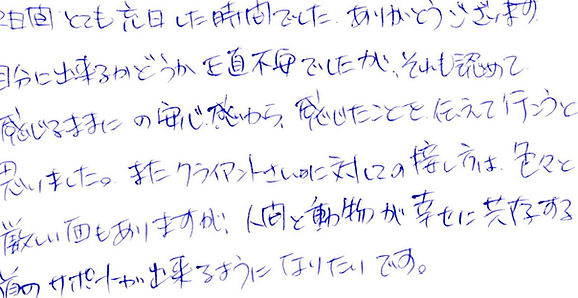 2日間とても充実した時間でした。ありがとうございます
自分に出来るかどうか正直不安でしたが、それも認めて
感じるままに の安心感から、感じたことを伝えて行こうと
思いました。またクライアントさんに対しての接し方は、色々と
厳しい面もありますが、人間と動物が幸せに共存する
為のサポートが出来るようになりたいです。